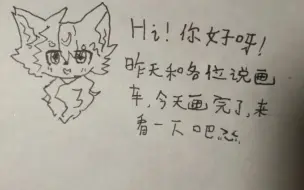 Hi！你好呀！
昨天和各位说画
车，今天画完了，来
看一下吧